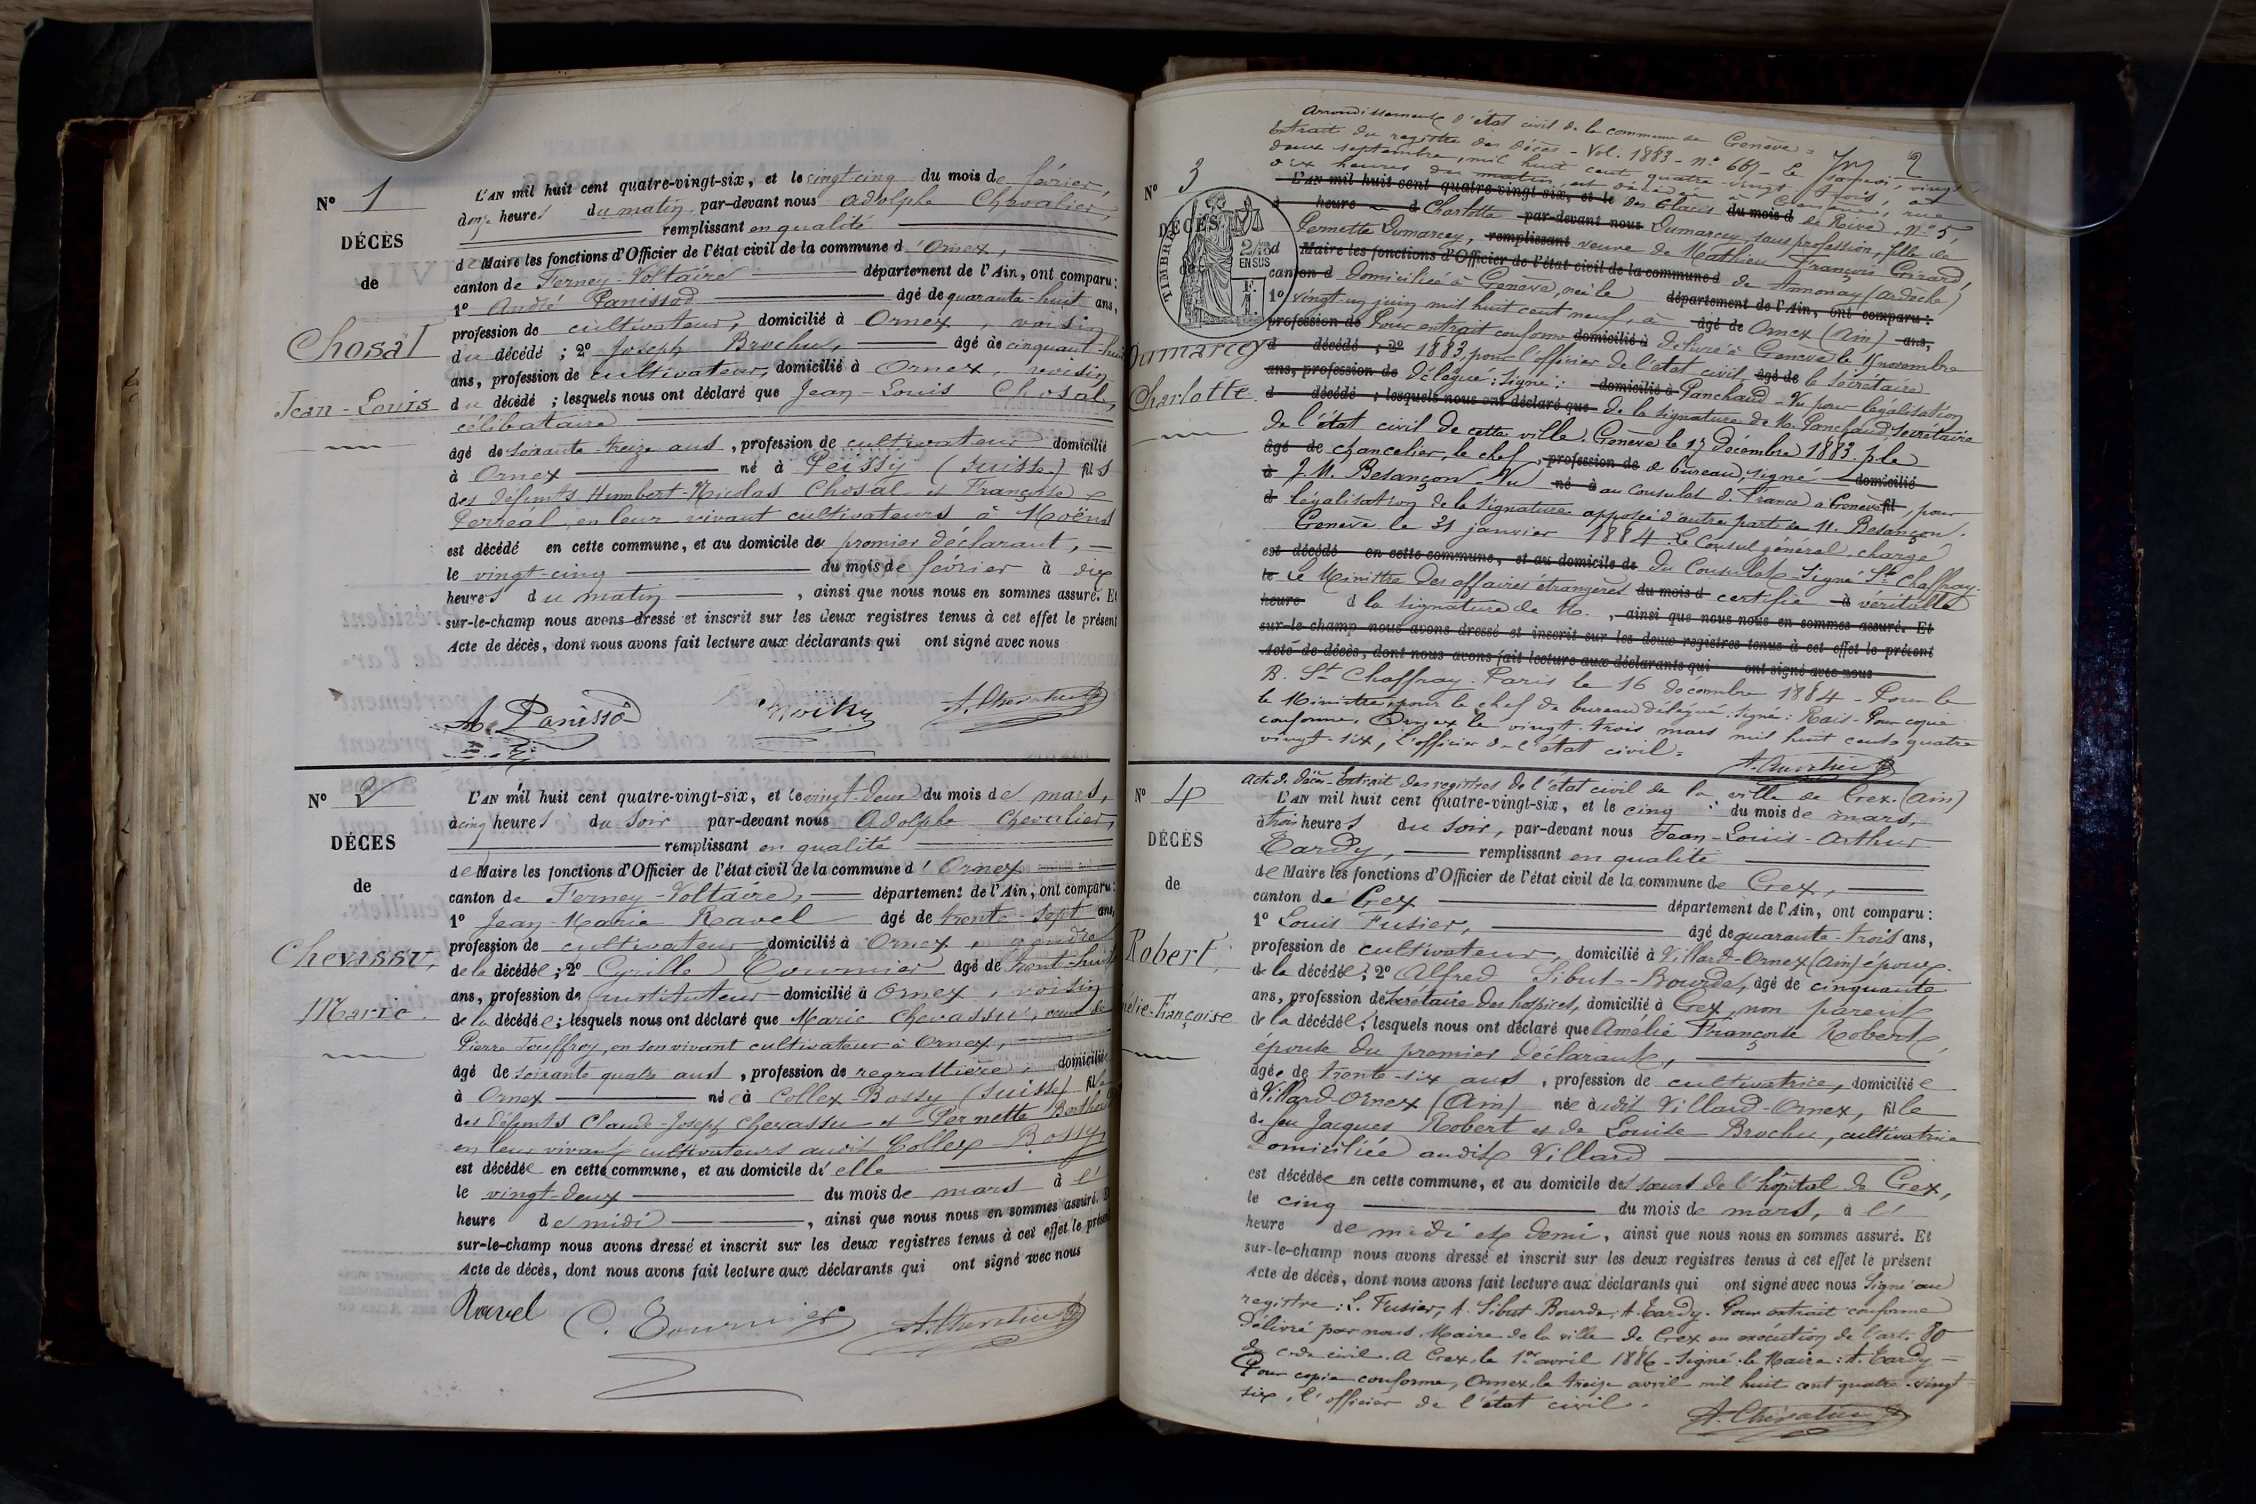 N° 1
DÉCÈS
de
Chosal
Jean-Louis
L'AN mil huit cent quatre-vingt-six, et le vingt cinq du mois de février,
onze heures du matin, par-devant nous Adolphe Chevalier,
remplissant en qualité
de Maire les fonctions d'Officier de l'état civil de la commune d'Ornex,
canton de Ferney-Voltaire département de l'Ain, ont comparu :
1° André Panissod âgé de quarante-huit ans,
profession de cultivateur, domicilié à Ornex, voisin
du décédé ; 2° Joseph Brochut, âgé de cinquante-huit
ans, profession de cultivateur, domicilié à Ornex, voisin
du décédé ; lesquels nous ont déclaré que Jean-Louis Chosal,
célibataire
âgé de soixante treize ans, profession de cultivateur domicilié
à Ornex né à Peissy (Suisse) fils
des défunts Humbert-Nicolas Chosal et Françoise
Perréal, en leur vivant cultivateurs à Moëns
est décédé en cette commune, et au domicile du premier déclarant,
le vingt-cinq du mois de février à dix
heures du matin, ainsi que nous nous en sommes assuré. Et
sur-le-champ nous avons dressé et inscrit sur les deux registres tenus à cet effet le présent
Acte de décès, dont nous avons fait lecture aux déclarants qui ont signé avec nous
A. Panissod
A. Chevalier
N° 2
DÉCÈS
de
Chevassu,
Marie.
L'AN mil huit cent quatre-vingt-six, et le vingt-deux du mois de mars,
à cinq heures du soir par-devant nous Adolphe Chevalier,
remplissant en qualité
de Maire les fonctions d'Officier de l'état civil de la commune d'Ornex
canton de Ferney-Voltaire, département de l'Ain, ont comparu :
1° Jean-Marie Ravel âgé de trente-sept ans,
profession de cultivateur domicilié à Ornex, gendre
de la décédée ; 2° Cyrille Tournier âgé de trent-huit
ans, profession d'instituteur domicilié à Ornex, voisin
de la décédée ; lesquels nous ont déclaré que Marie Chevassu, veuve de
Pierre Jouffroy, en son vivant cultivateur à Ornex,
âgé de soixante quatre ans, profession de regrattière, domiciliée
à Ornex née à Collex-Bossy (Suisse) fille
des défunts Claude-Joseph Chevassu et Pernette Berthoud
en leur vivant cultivateurs audit Collex-Bossy
est décédée en cette commune, et au domicile d'elle
le vingt-deux du mois de mars à l'
heure de midi, ainsi que nous nous en sommes assuré. Et
sur-le-champ nous avons dressé et inscrit sur les deux registres tenus à cet effet le présent
Acte de décès, dont nous avons fait lecture aux déclarants qui ont signé avec nous
Ravel C. Tournier A. Chevalier
2
N° 3
DÉCÈS
de
TIMBRE
2/10mes
EN SUS
Dumarcey
Charlotte.
Arrondissement d'état civil de la commune de Genève =
Extrait du registre des décès - Vol. 1883 - n° 667 - le vingt
deux septembre, mil huit cent quatre-vingt-trois, à
dix heures du matin, est décédée à Genève, rue
L'AN mil huit cent quatre-vingt-six, et le des Glacis du mois d de Rive, n° 5,
d heure d Charlotte par-devant nous Dumarcey, sans profession, fille de
Pernette Dumarcey, remplissant veuve de Mathieu-François Girard,
Maire les fonctions d'Officier de l'état civil de la commune d de Annonay (Ardèche)
canton d domiciliée à Genève, née le département de l'Ain, ont comparu :
1° vingt-un juin mil huit cent neuf, à âgé de Ornex (Ain) ans,
profession de Pour extrait conforme domicilié à délivré à Genève le 15 novembre
d décédé ; 2° 1883, pour l'officier de l'état civil, âgé de le secrétaire
ans, profession de délégué : Signé : domicilié à Panchaud - Vu pour légalisation
d décédé ; lesquels nous ont déclaré que de la signature de M. Panchaud, secrétaire
de l'état civil de cette ville. Genève le 17 décembre 1883. p. le
âgé de chancelier, le chef, profession de de bureau, signé domicilié
à J. M. Besançon - Vu né à au consulat de France à Genève fil, pour
d légalisation de la signature apposée d'autre part de M. Besançon.
Genève le 31 janvier 1884. Le Consul général chargé
est décédé en cette commune, et au domicile de du Consulat. Signé St Chaffray.
le Le Ministre des affaires étrangères du mois d certifie à véritable
heure d la signature de M., ainsi que nous nous en sommes assuré. Et
sur-le-champ nous avons dressé et inscrit sur les deux registres tenus à cet effet le présent
Acte de décès, dont nous avons fait lecture aux déclarants qui ont signé avec nous
B. St Chaffray. Paris le 16 décembre 1884 - Pour le
le Ministre, pour le chef de bureau délégué. Signé : Rais - Pour copie
conforme, Ornex le vingt-trois mars mil huit cent quatre
vingt-six, L'officier de l'état civil =
A. Chevalier
N° 4
DÉCÈS
de
Robert,
Amélie-Françoise
Acte de décès - Extrait des registres de l'état civil de la ville de Gex. (Ain)
L'AN mil huit cent quatre-vingt-six, et le cinq du mois de mars,
à trois heures du soir, par-devant nous Jean-Louis-Arthur
Tardy, remplissant en qualité
de Maire les fonctions d'Officier de l'état civil de la commune de Gex,
canton de Gex département de l'Ain, ont comparu :
1° Louis Fusier, âgé de quarante-trois ans,
profession de cultivateur, domicilié à Villard-Ornex (Ain) époux
de la décédée ; 2° Alfred Sibut-Bourde, âgé de cinquante
ans, profession de secrétaire des hospices, domicilié à Gex, non parent
de la décédée ; lesquels nous ont déclaré que Amélie Françoise Robert,
épouse du premier déclarant,
âgée de trente-six ans, profession de cultivatrice, domiciliée
à Villard-Ornex (Ain) née audit Villard-Ornex, fille
de feu Jacques Robert et de Louise Brochu, cultivatrice
domiciliée audit Villard
est décédée en cette commune, et au domicile des sœurs de l'hôpital de Gex,
le cinq du mois de mars, à l'
heure de midi et demi, ainsi que nous nous en sommes assuré. Et
sur-le-champ nous avons dressé et inscrit sur les deux registres tenus à cet effet le présent
Acte de décès, dont nous avons fait lecture aux déclarants qui ont signé avec nous Signé au
registre : L. Fusier, A. Sibut Bourde, A. Tardy. Pour extrait conforme
délivré par nous Maire de la ville de Gex en exécution de l'art. 80
du code civil. A Gex, le 1er avril 1886 - Signé le Maire : A. Tardy =
Pour copie conforme, Ornex, le treize avril mil huit cent quatre-vingt
six, L'officier de l'état civil.
A. Chevalier